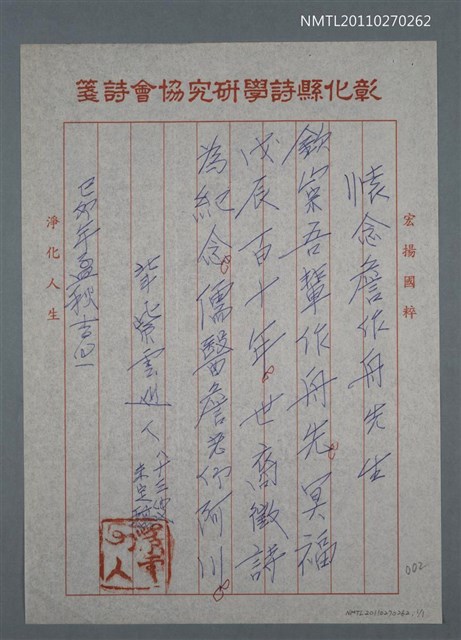 NMTL20110270262
彰化縣詩學研究協會詩箋
宏揚國粹
懷念詹作舟先生
欽崇吾輩作舟先冥福
戊辰百十年世裔徵詩
為紀念儒醫詹老作阿川
紫雲道人 八十三
己卯年孟秋吉
淨化人生
002
NMTL20110270262 1/1